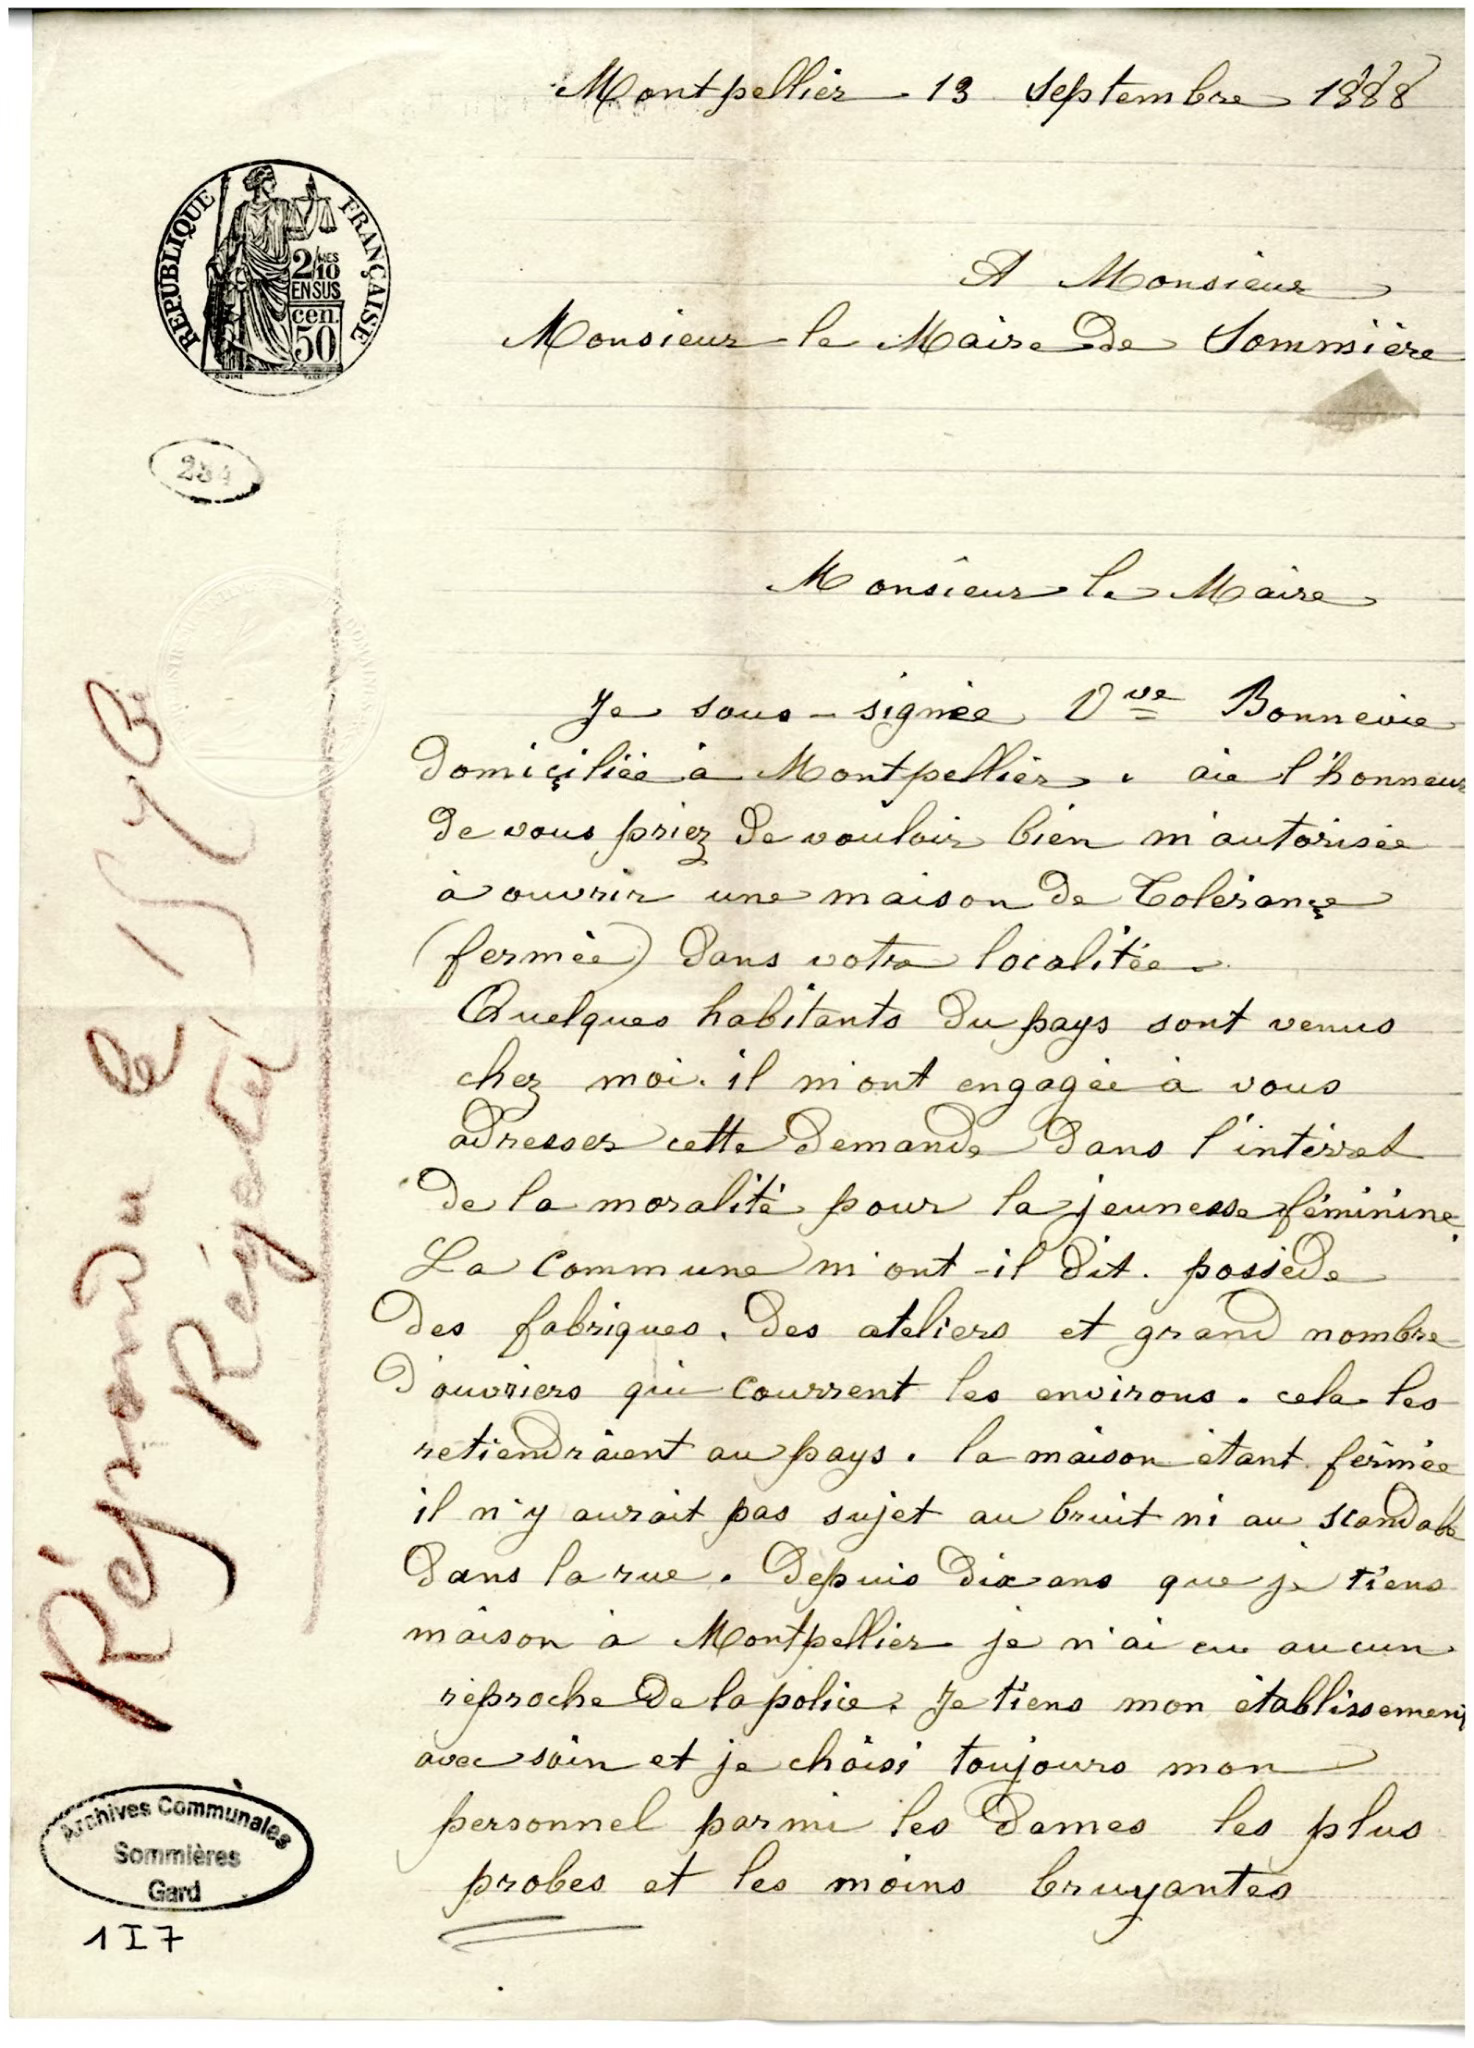 Montpellier 13 Septembre 1888
RÉPUBLIQUE FRANÇAISE
2/10 MES
EN SUS
cen.
50
A Monsieur
Monsieur le Maire de Sommière
234
Monsieur le Maire
Je sous-signée Vve Bonnevie
domiçiliée à Montpellier. aie l'honneur
de vous priez de vouloir bien m'autorisée
à ouvrir une maison de Tolérançe
(fermée) dans votre localitée.
Quelques habitants du pays sont venus
chez moi. il m'ont engagée à vous
adresser cette demande dans l'intérret
de la moralité pour la jeunesse féminine.
La Commune m'ont-il dit. possède
des fabriques. des ateliers et grand nombre
d'ouvriers qui courrent les environs. cela les
retiendraient au pays. la maison étant fermée
il n'y aurait pas sujet au bruit ni au scandale
dans la rue. Depuis dix ans que je tiens
maison à Montpellier je n'ai eu aucun
réproche de la police. Je tiens mon établissement
avec soin et je choisi toujours mon
personnel parmi les dames les plus
probes et les moins bruyantes
Répondu le 15 7bre
Rejeté
Archives Communales
Sommières
Gard
1 I 7